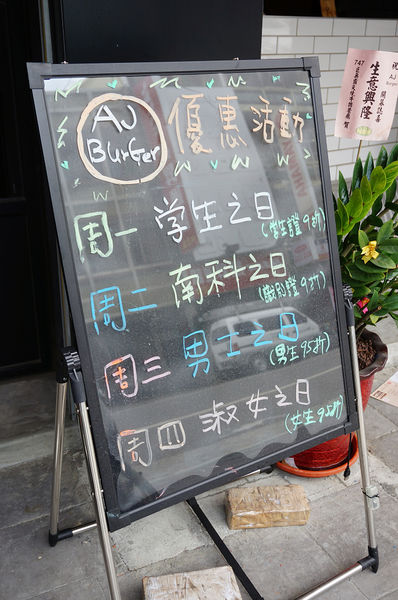 AJ
BurGer
優惠活動
周一 学生之日
(学生證 9折)
周二 南科之日
(識別證 9折)
周三 男士之日
(男生 95折)
周四 淑女之日
(女生 95折)
祝 AJ 開幕誌喜
生意興隆
賀